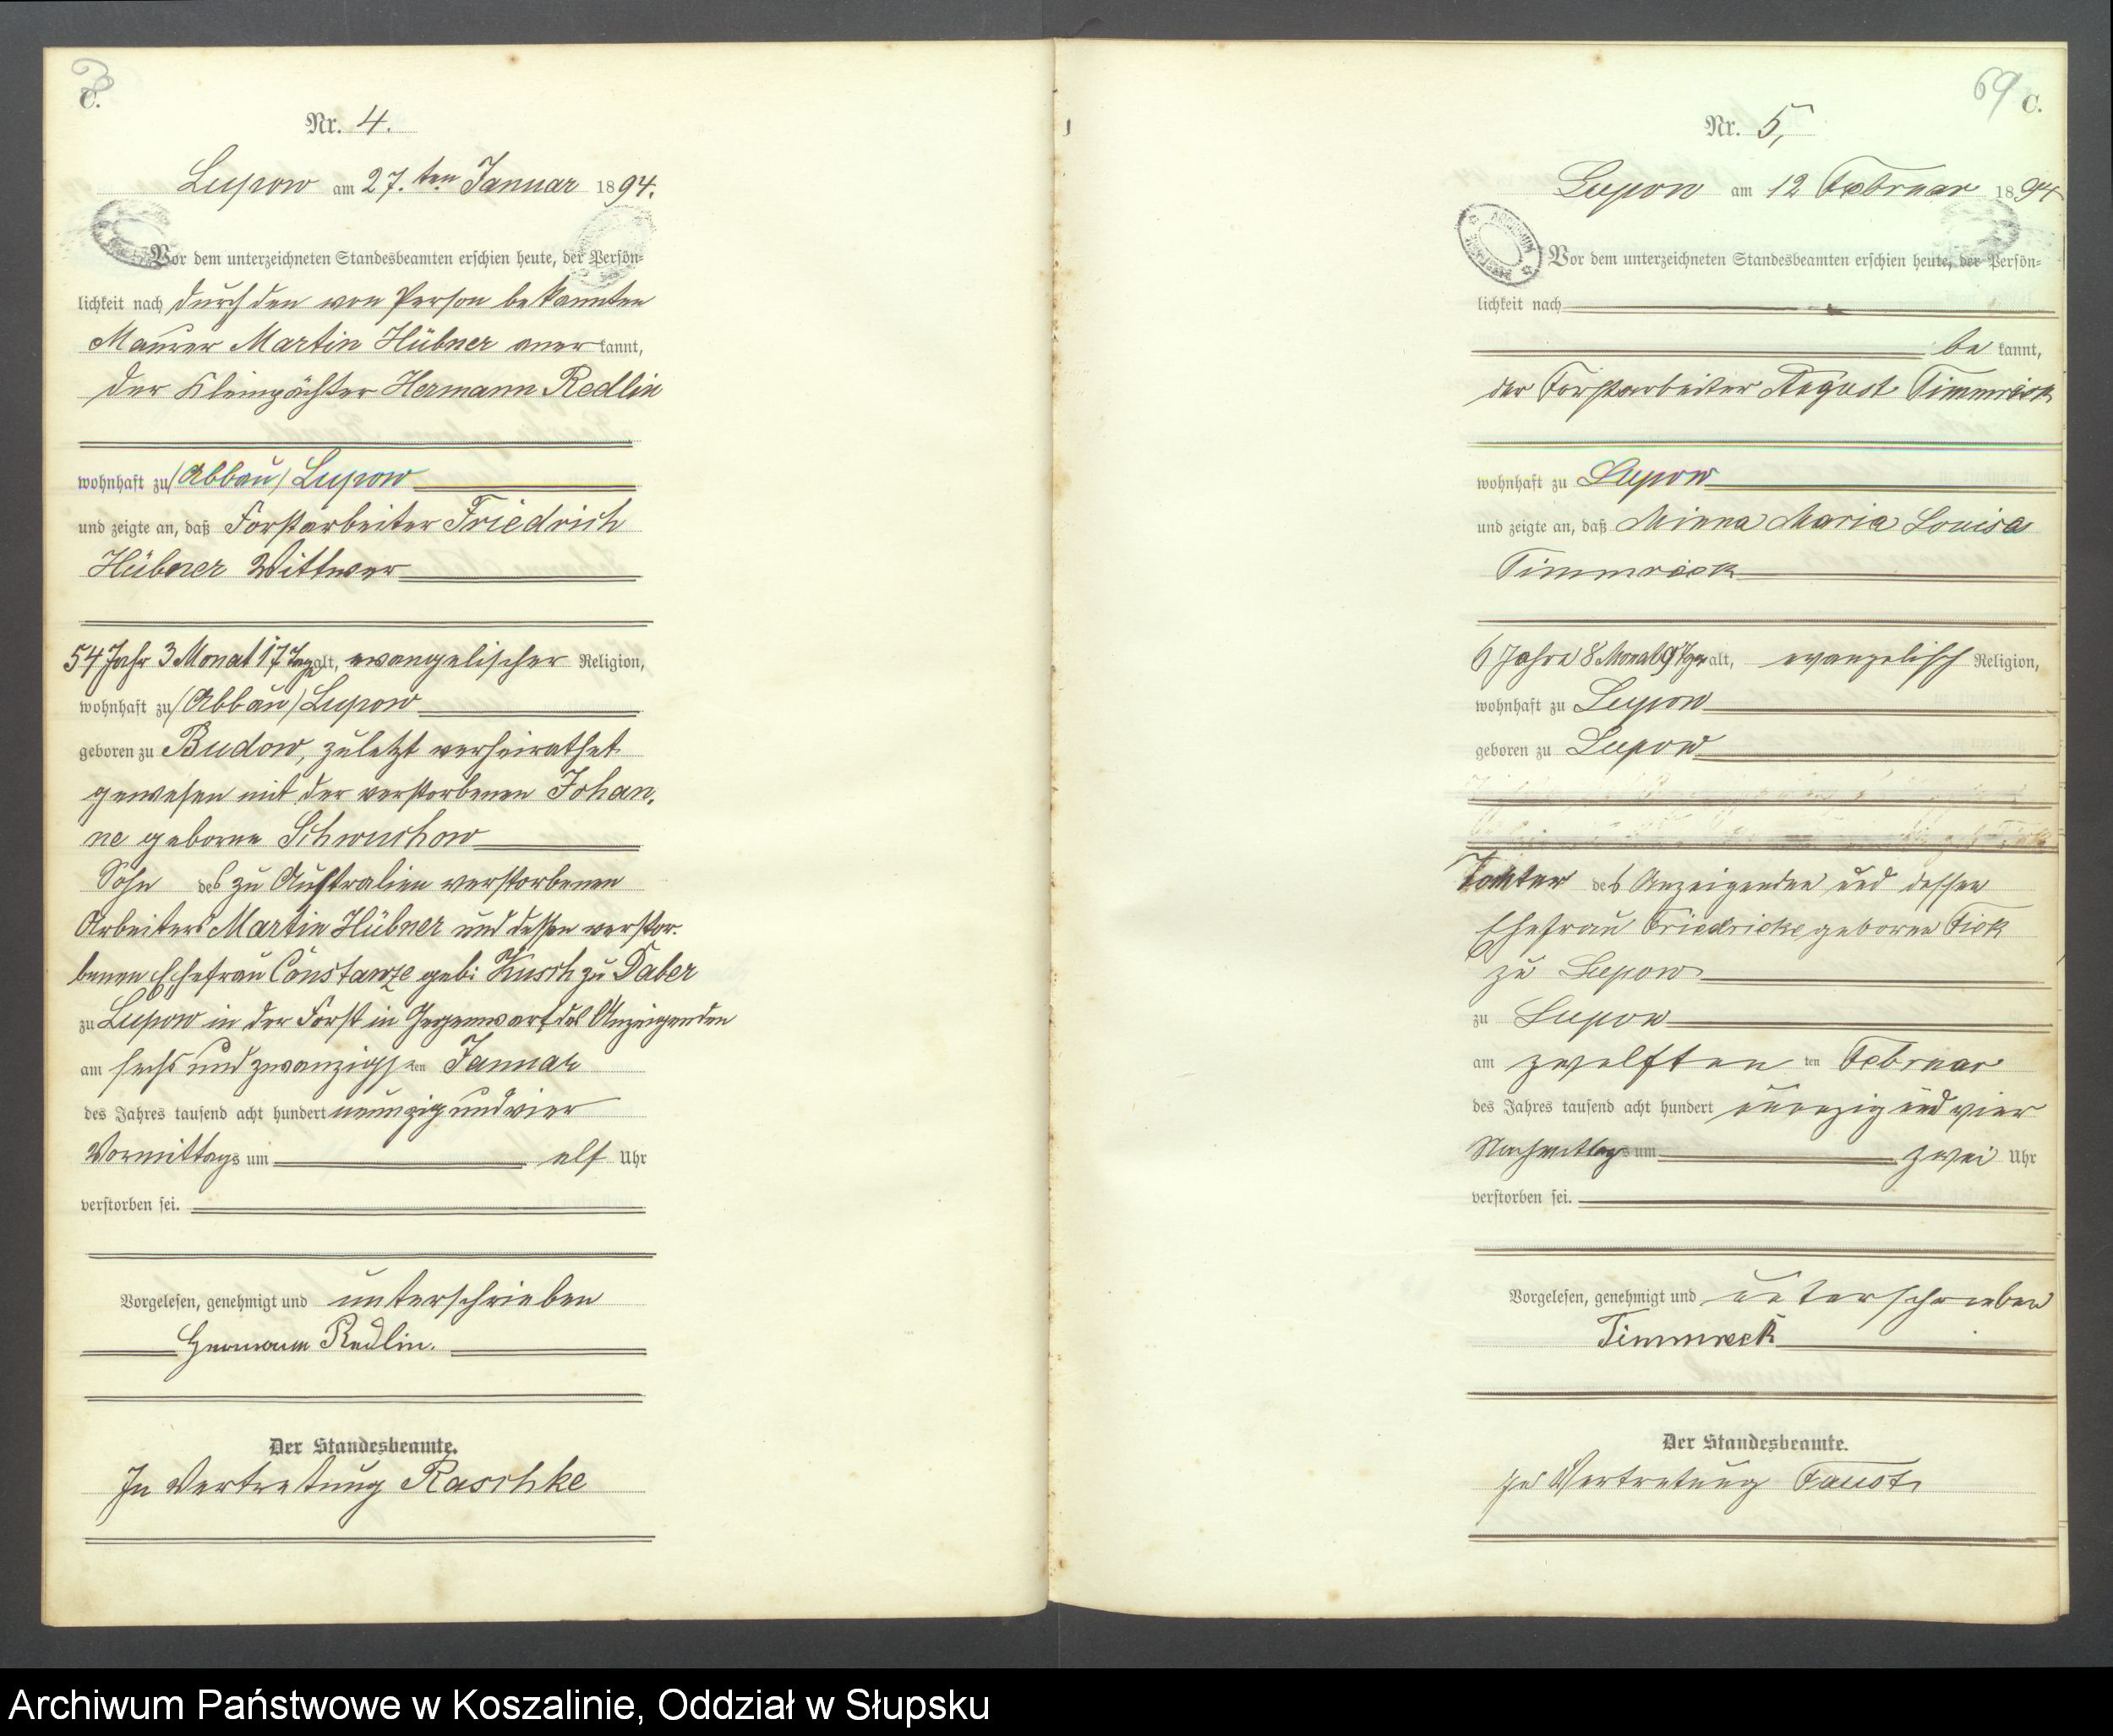 C.
Nr. 4.
Lupow am 27. ten Januar 1894.
Vor dem unterzeichneten Standesbeamten erschien heute, der Persön-
lichkeit nach durch den von Person bekannten
Maurer Martin Hübner anerkannt,
der Kleinpächter Hermann Redlin
wohnhaft zu (Abbau) Lupow
und zeigte an, daß Forstarbeiter Friedrich
Hübner Wittwer
54 Jahr 3 Monat 17 Tage alt, evangelischer Religion,
wohnhaft zu (Abbau) Lupow
geboren zu Budow, zuletzt verheirathet
gewesen mit der verstorbenen Johan-
ne geborne Schwuchow
Sohn des zu Australien verstorbenen
Arbeiters Martin Hübner und dessen verstor-
benen Ehefrau Constanze geb: Kusch zu Daber
zu Lupow in der Forst in Gegenwart des Anzeigenden
am sechs und zwanzigsten Januar
des Jahres tausend acht hundert neunzig und vier
Vormittags um elf Uhr
verstorben sei.
Vorgelesen, genehmigt und unterschrieben
Hermann Redlin.
Der Standesbeamte.
In Vertretung Raschke
69 C.
Nr. 5,
Lupow am 12 Februar 1894
ARCHIWUM
Vor dem unterzeichneten Standesbeamten erschien heute, der Persön-
lichkeit nach
be kannt,
der Forstarbeiter August Timmreck
wohnhaft zu Lupow
und zeigte an, daß Minna Maria Louise
Timmreck
6 Jahre 8 Monat 9 Tage alt, evangelisch Religion,
wohnhaft zu Lupow
geboren zu Lupow
Tochter des Anzeigenden und dessen
Ehefrau Friedricke geborne Fick
zu Lupow
zu Lupow
am zwölften ten Februar
des Jahres tausend acht hundert neunzig und vier
Nachmittags um zwei Uhr
verstorben sei.
Vorgelesen, genehmigt und unterschrieben
Timmreck
Der Standesbeamte.
In Vertretung Faust
Archiwum Państwowe w Koszalinie, Oddział w Słupsku